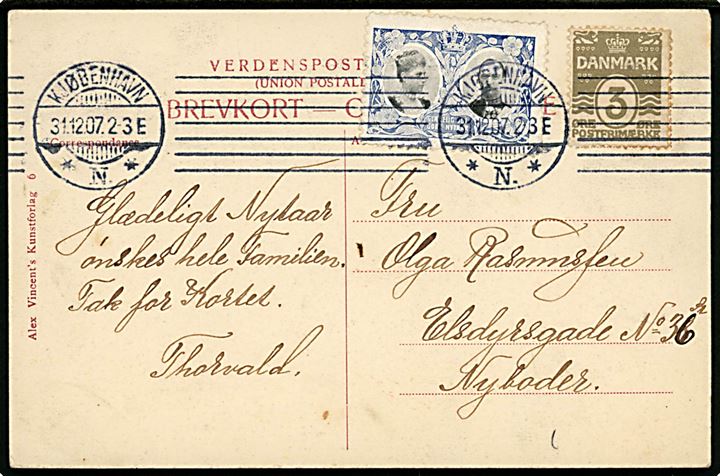 VERDENSPOST
(UNION POSTALE
BREVKORT
Correspondance.
KJØBENHAVN
31.12.07. 2-3 E
* N. *
KJØBENHAVN
31.12.07. 2-3 E
* N. *
DANMARK
3
ØRE ØRE
POSTFRIMÆRKE
Alex Vincent's Kunstforlag 6
Glædeligt Nytaar
ønskes hele Familien.
Tak for Kortet.
Thorvald.
Fru
Olga Rasmussen
Elsdyrsgade No 36
Nyboder.